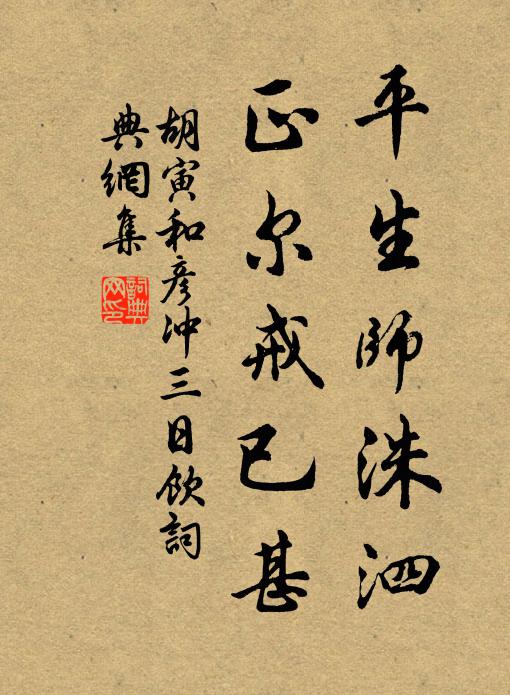 平生師洙泗
正尔戒已甚
胡寅和彦冲三日飲詞
典網集
詞典網印